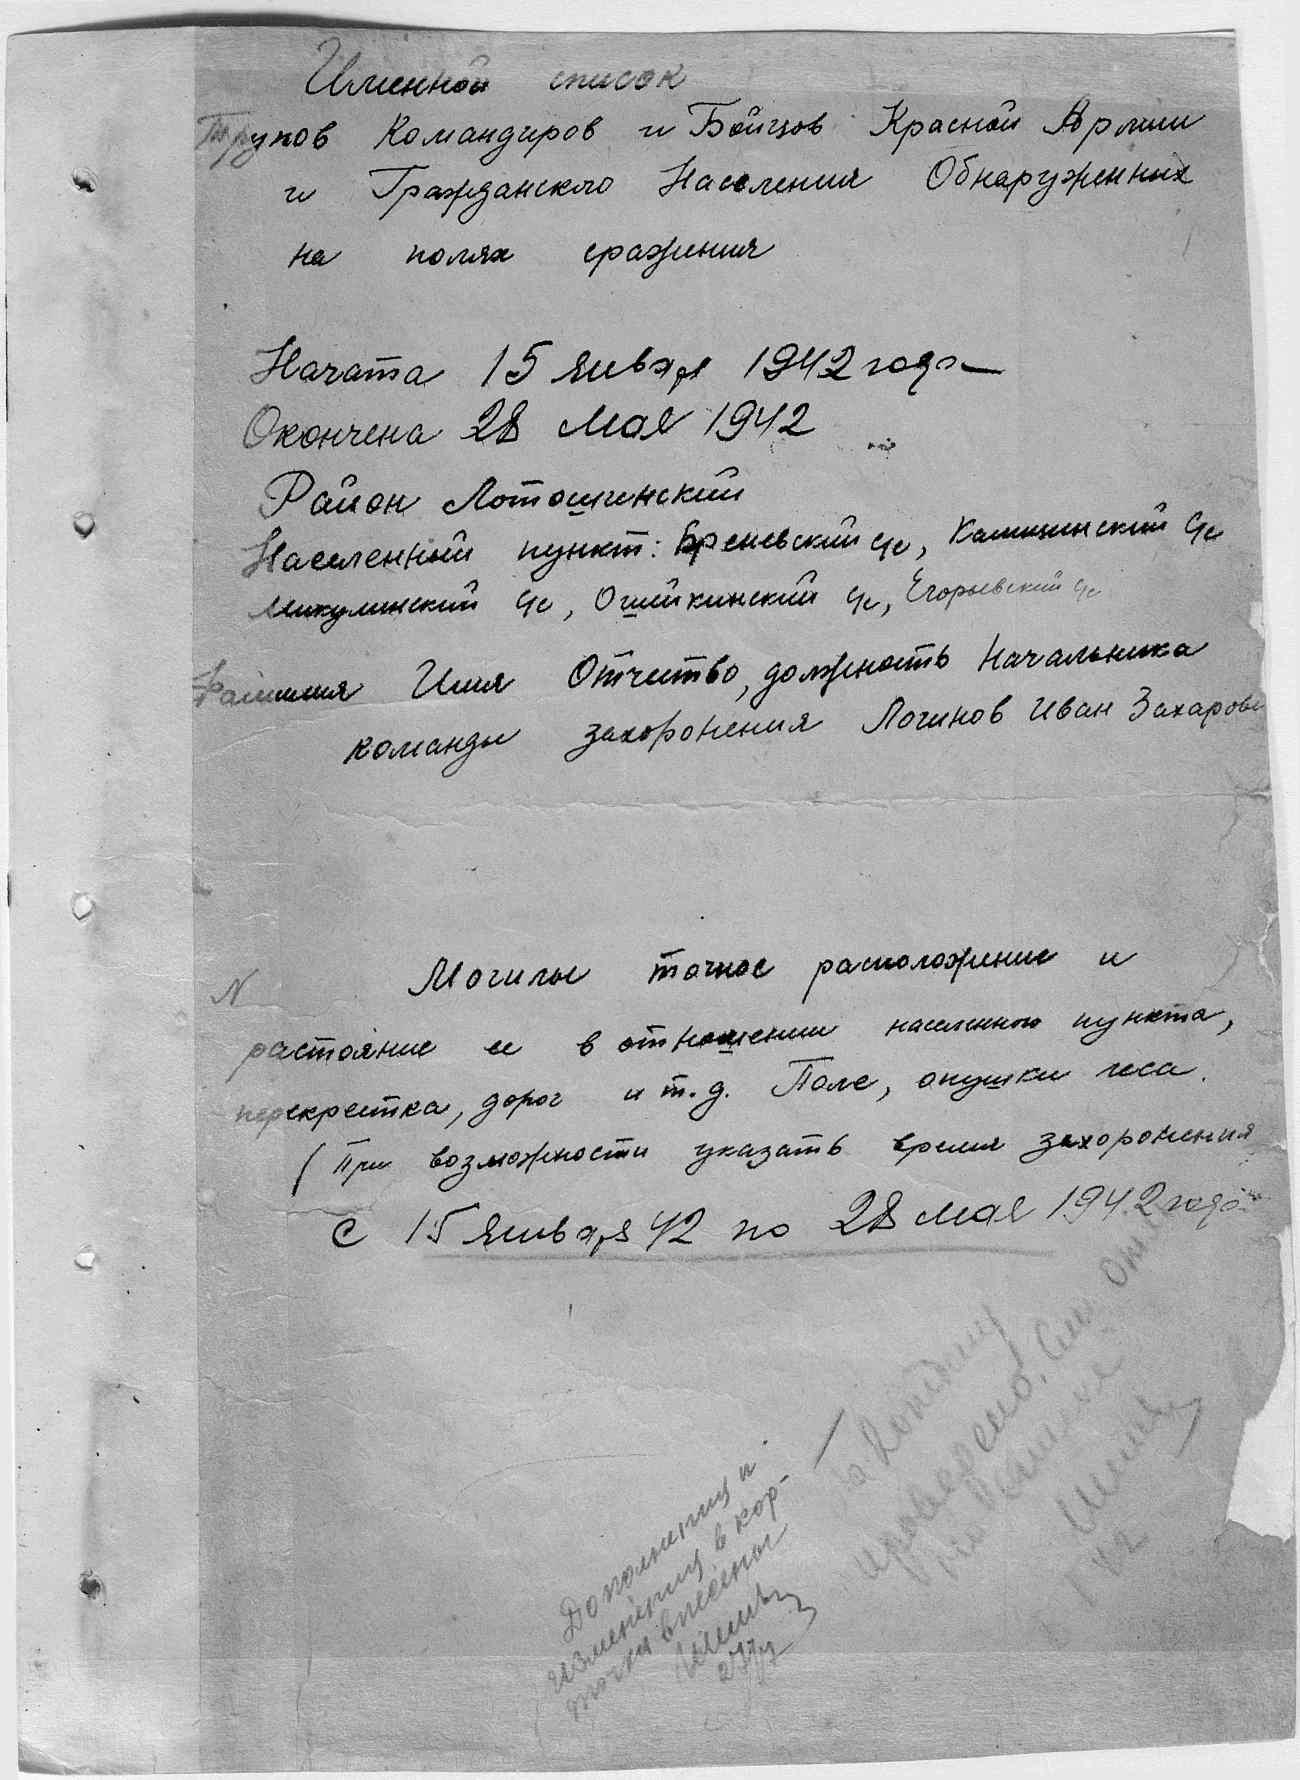 Именной список
Трупов Командиров и Бойцов Красной Армии
и Гражданскло Населения Обнаруженных
на полях сражения
Начата 15 января 1942 года
Окончена 28 мая 1942
Район Лотошинский
Населенный пункт: Бреневский с/с, Калицинский с/с
Микулинский с/с, Ошейкинский с/с, Егорьевский с/с
Фамилия Имя Отчество, должность Начальника
команды захоронения Логинов Иван Захарови
N Могилы точное расположение и
растояние ее в отношении населенного пункта,
перекрестка, дорог и т.д. Поле, опушки леса.
(При возможности указать время захоронения
С 15 января 42 по 28 мая 1942 года
проверено. См
Дополнения и
изменения в кар-
точки внесены